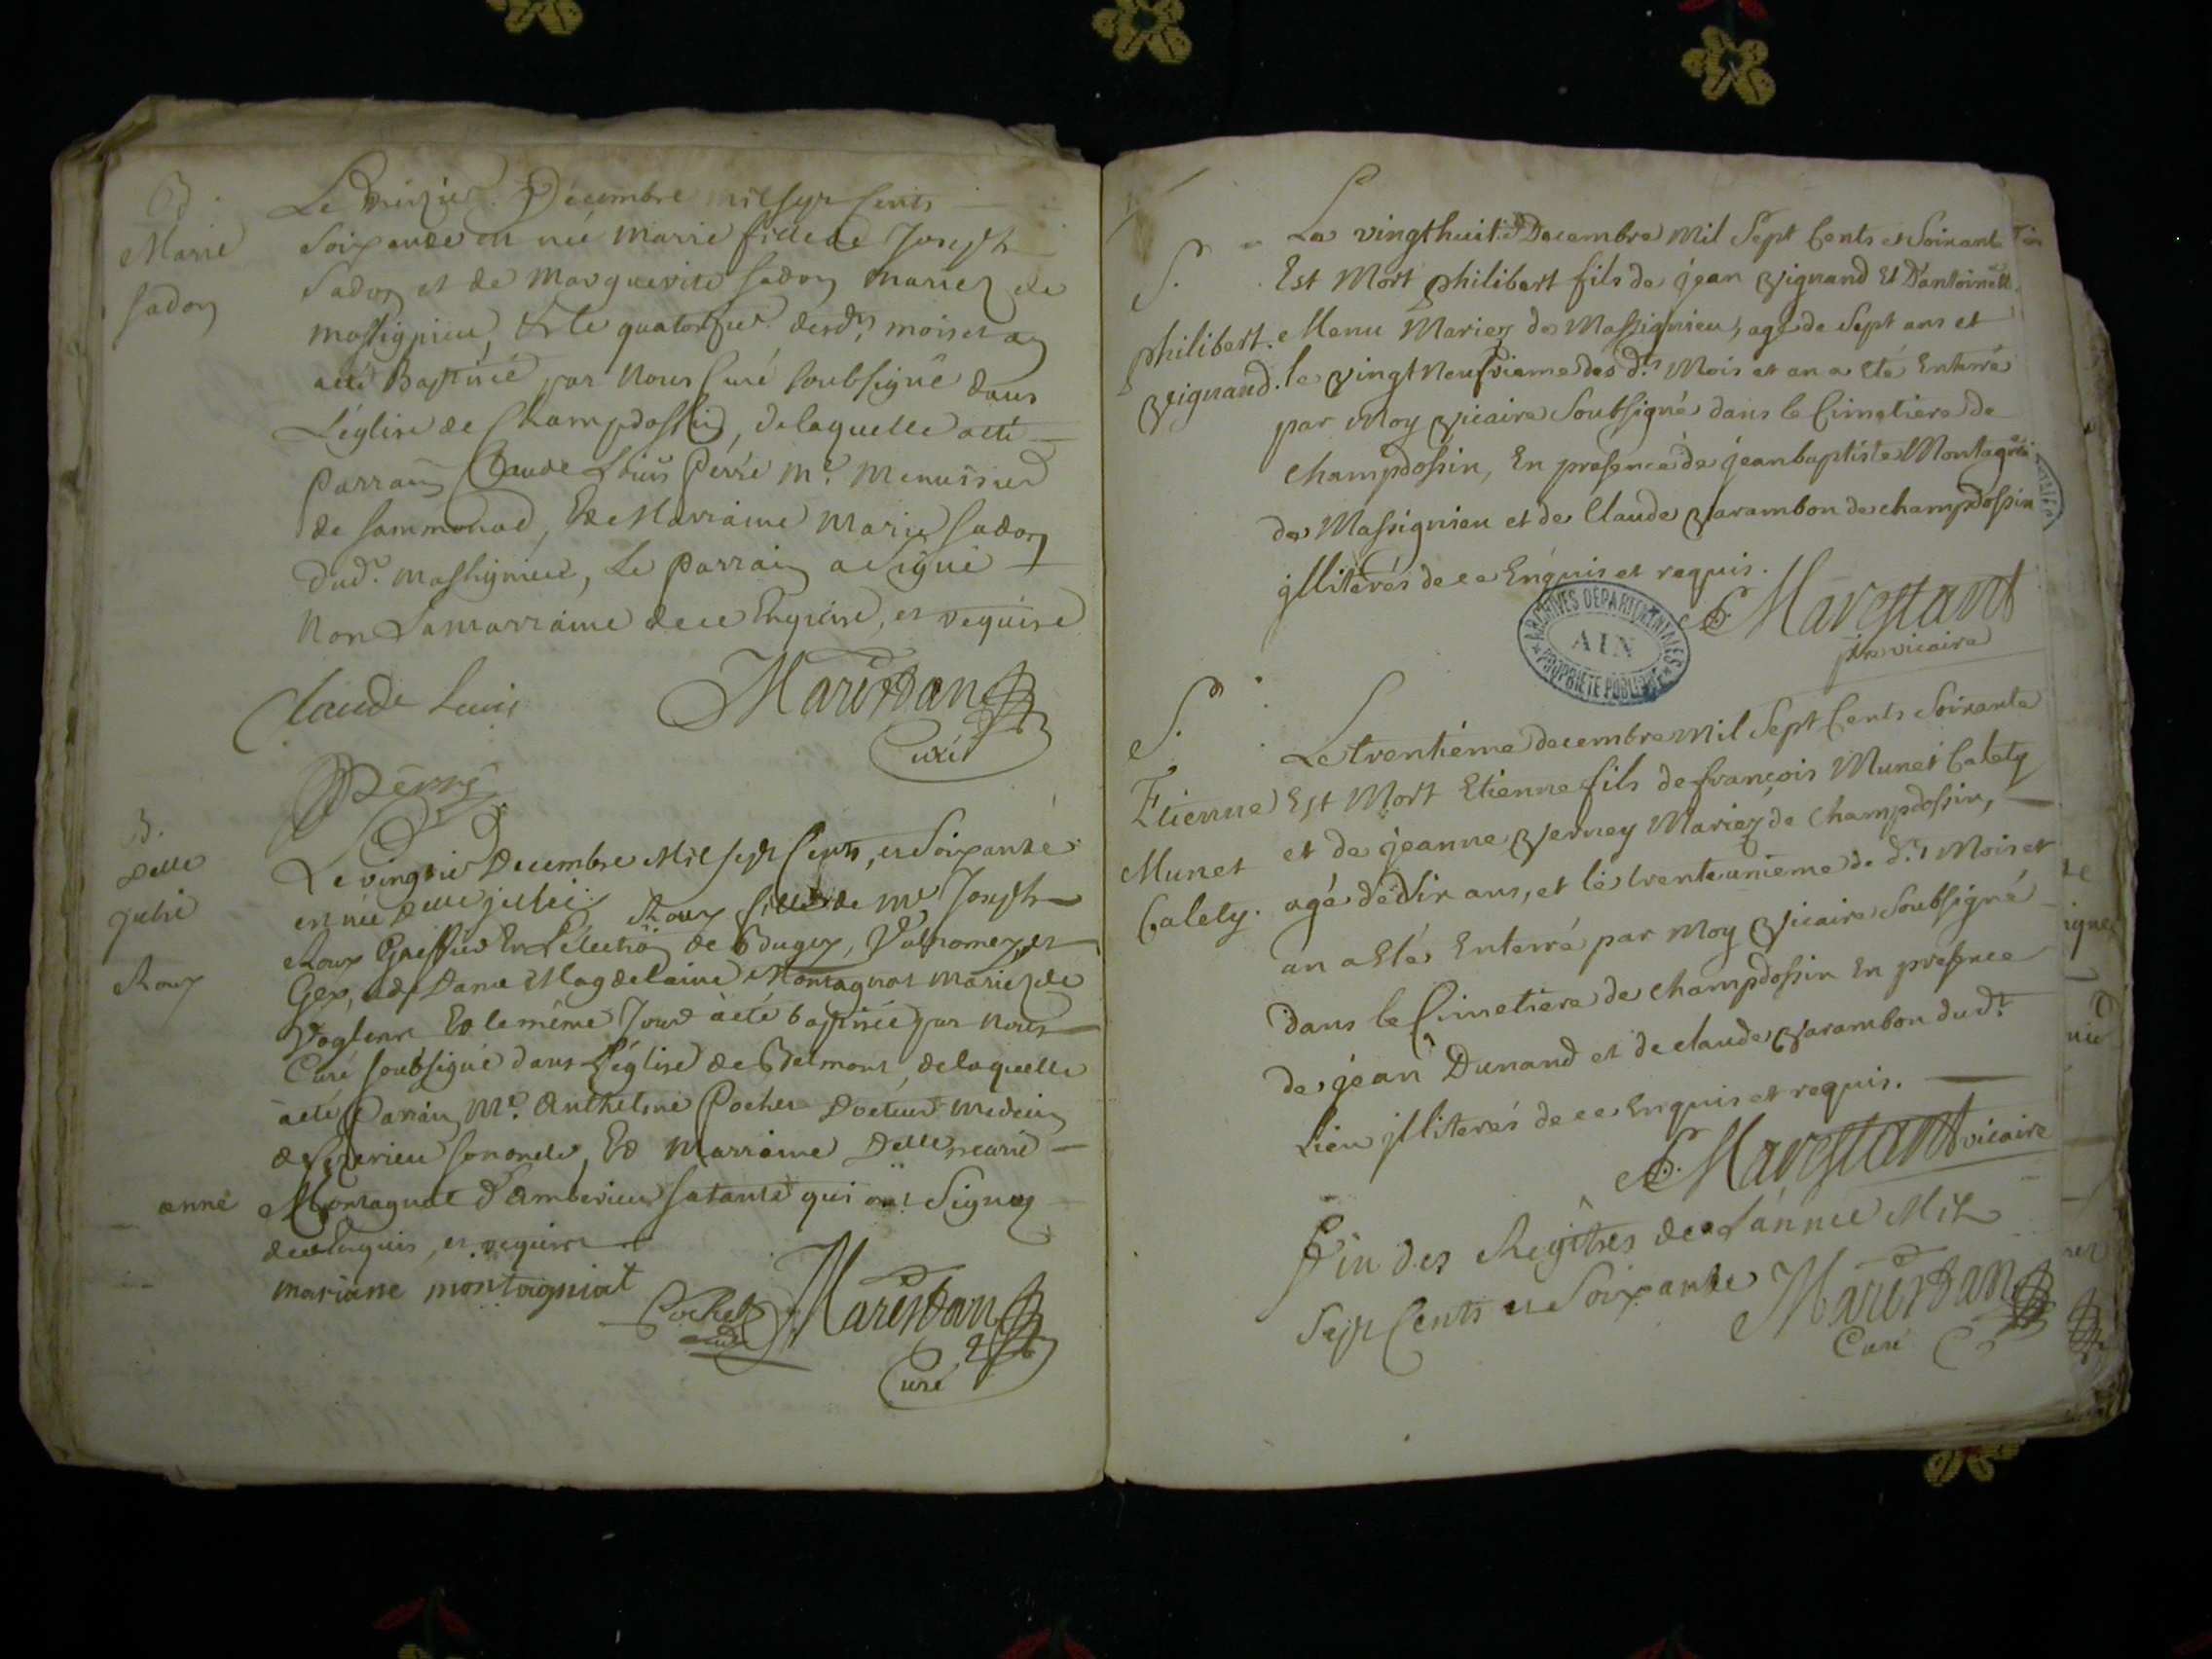 B.
Marie
Sadon
Le treizie. Decembre mil sept Cents
Soixante est née Marie fille de Joseph
Sadon et de Marguerite Sadon mariez de
massignieu, & le quatorzie. desd. mois et an
a été Baptisée par Nous Curé soubsigné dans
L'église de Champdossin, de laquelle a été
Parrain Claude Louis Perré Me. Menuisier
de Sammonod, Et Marraine Marie Sadon
dud. massignieu, Le Parrain a signé
Non La marraine de ce Enquise, et requise
Claude Louis
Perré
Marestan
Curé
B.
Delle
julie
Roux
Le vingtie Decembre Mil sept Cents, et Soixante
est née Delle julie Roux fille de Me Joseph
Roux Greffier En l'élection de Bugey, Valromey, et
Gex, et de Dame Magdelaine Montagnat mariez de
Voglenn Et le même Jour a été baptisée par Nous
Curé soubsigné dans L'église de Belmont, de laquelle
a été Parain Me. Anthelme Pochet Docteur Medecin
de son oncle, Et Marraine Delle marie
anne Montagnat d'Amberieu sa tante qui ont Signez
de ce Enquis, et requis
mariane montagniat
Pochet
Marestan
Curé
S.
philibert
vignand.
Le vingthuit.e Decembre Mil Sept Cents et Soixante
Est Mort philibert fils de jean vignand Et D'antoinett.
Menu Mariez de Massignieu, agé de Sept ans et
le vingt Neufvieme des d.ts Mois et an a Eté Enterré
par Moy vicaire Soubsigné dans le Cimetiere de
Champdossin, En presence de jean baptiste Montagn
de Massignieu et de Claude varambon de champdossin
jlliterés de ce Enquis et requis.
Marestant
ptre vicaire
ARCHIVES DÉPARTEMENTALES
AIN
PROPRIÉTÉ PUBLIQUE
S.
Etienne
Munet
Calety.
Le trentième decembre mil Sept Cents Soixante
Est Mort Etienne fils de françois Munet Calety
et de jeanne verney Mariez de Champdossin,
agé de dix ans, et le trente unieme de d.ts Mois et
an a Eté Enterré par Moy vicaire Soubsigné
dans le Cimetiere de champdossin En presence
de jean Dunand et de claude varambon dud.t
Lieu jlliterés de ce Enquis et requis.
Marestant vicaire
Fin des Regitres de L'année Mil
Sept Cents et Soixante
Marestan
Curé